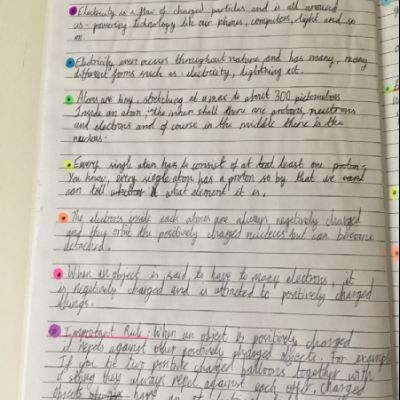 Electricity is a flow of charged particles and is all around
us - powering technology like our phones, computers, light and so
on
Electricity even occurs throughout nature and has many, many
different forms such as electricity, lightning ect.
Atoms are tiny, stretching at a max to about 300 picometres
Inside an atom, the inner shell there are protons, neutrons
and electrons and of course in the middle there is the
nucleus.
Every single atom has to consist of at least one proton.
You know, every single atom has a proton so by that we
can tell what element it is.
The electrons inside each atom are always negatively charged
and they orbit the positively charged nucleus but can become
detached.
When an object is said to have to many electrons, it
is negatively charged and is attracted to positively charged
things.
Important Rule: When an object is positively charged
it repels against other positively charged objects. For example
If you tie two positive charged balloons together with
a string they always repel against each other, charged
objects have an